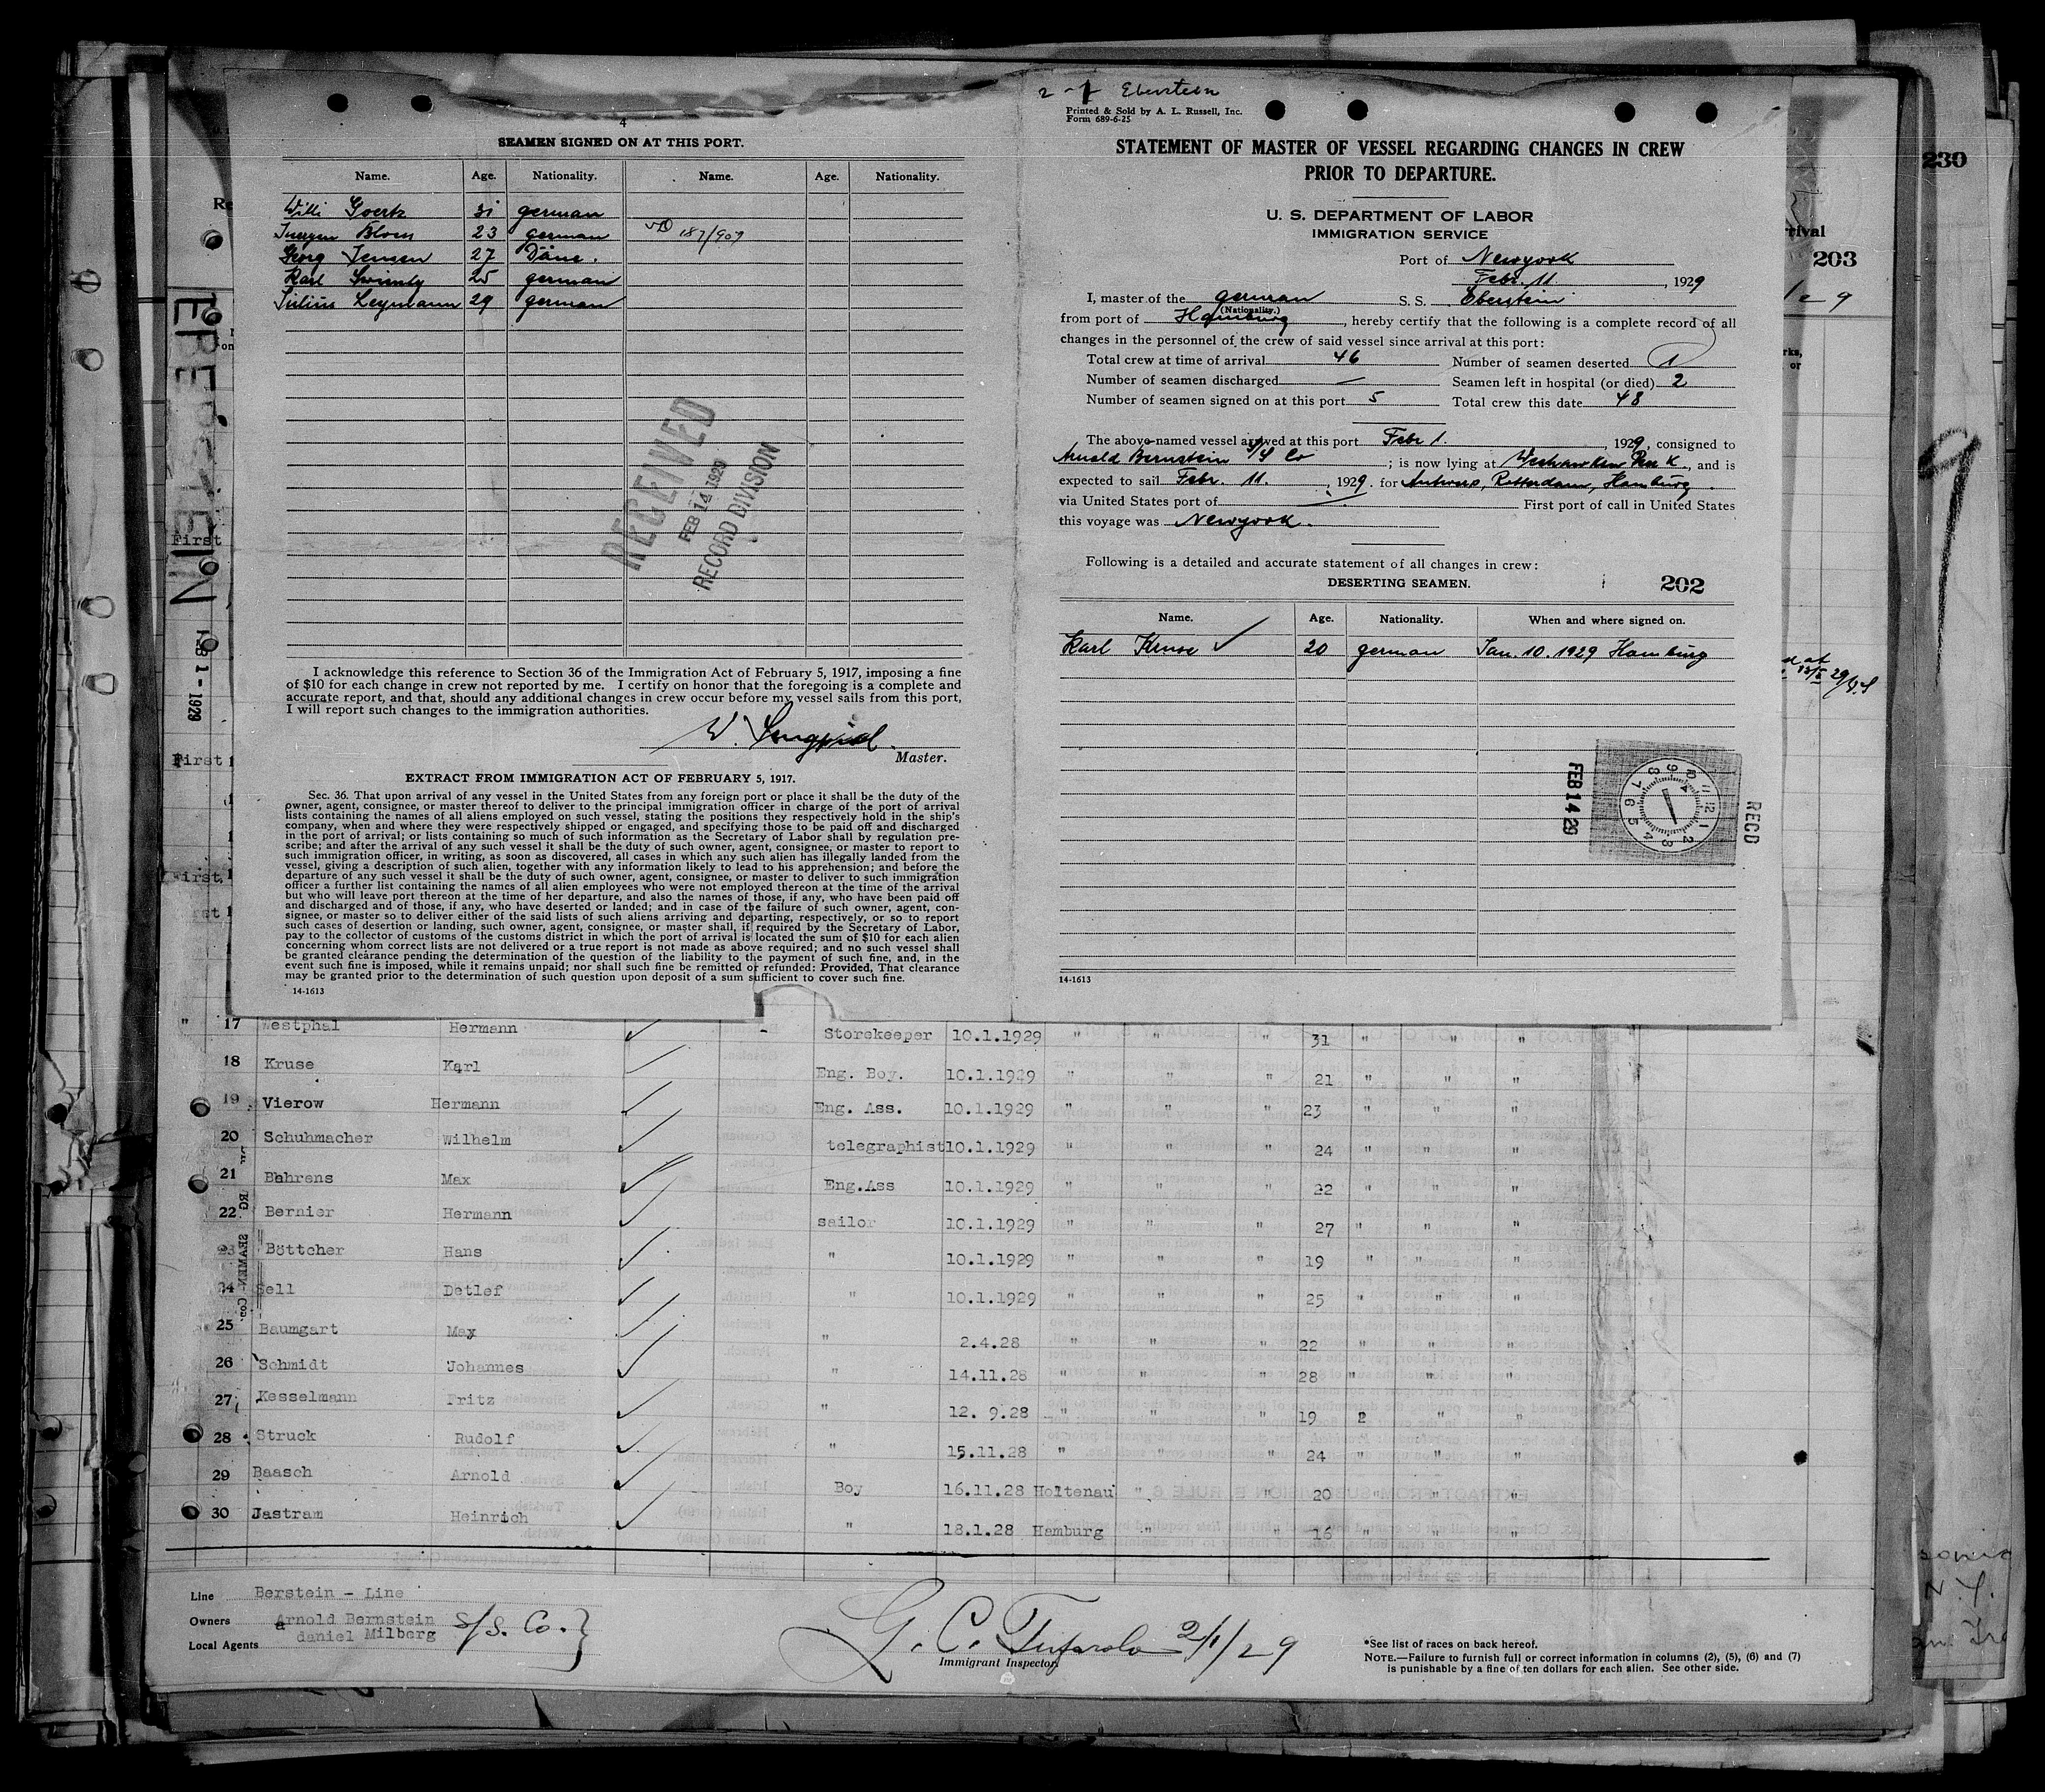 4
SEAMEN SIGNED ON AT THIS PORT.
Name. Age. Nationality. Name. Age. Nationality.
Willi Goertz 31 german
Juergen Bloen 23 german 187/909
Georg Jensen 27 Däne.
Karl 25 german
Julius Leymann 29 german
RECEIVED
FEB 14 1929
RECORD DIVISION
I acknowledge this reference to Section 36 of the Immigration Act of February 5, 1917, imposing a fine
of $10 for each change in crew not reported by me. I certify on honor that the foregoing is a complete and
accurate report, and that, should any additional changes in crew occur before my vessel sails from this port,
I will report such changes to the immigration authorities.
W.
Master.
EXTRACT FROM IMMIGRATION ACT OF FEBRUARY 5, 1917.
Sec. 36. That upon arrival of any vessel in the United States from any foreign port or place it shall be the duty of the
owner, agent, consignee, or master thereof to deliver to the principal immigration officer in charge of the port of arrival
lists containing the names of all aliens employed on such vessel, stating the positions they respectively hold in the ship's
company, when and where they were respectively shipped or engaged, and specifying those to be paid off and discharged
in the port of arrival; or lists containing so much of such information as the Secretary of Labor shall by regulation pre-
scribe; and after the arrival of any such vessel it shall be the duty of such owner, agent, consignee, or master to report to
such immigration officer, in writing, as soon as discovered, all cases in which any such alien has illegally landed from the
vessel, giving a description of such alien, together with any information likely to lead to his apprehension; and before the
departure of any such vessel it shall be the duty of such owner, agent, consignee, or master to deliver to such immigration
officer a further list containing the names of all alien employees who were not employed thereon at the time of the arrival
but who will leave port thereon at the time of her departure, and also the names of those, if any, who have been paid off
and discharged and of those, if any, who have deserted or landed; and in case of the failure of such owner, agent, con-
signee, or master so to deliver either of the said lists of such aliens arriving and departing, respectively, or so to report
such cases of desertion or landing, such owner, agent, consignee, or master shall, if required by the Secretary of Labor,
pay to the collector of customs of the customs district in which the port of arrival is located the sum of $10 for each alien
concerning whom correct lists are not delivered or a true report is not made as above required; and no such vessel shall
be granted clearance pending the determination of the question of the liability to the payment of such fine, and, in the
event such fine is imposed, while it remains unpaid; nor shall such fine be remitted or refunded: Provided, That clearance
may be granted prior to the determination of such question upon deposit of a sum sufficient to cover such fine.
14-1613
2-1 Eberstein
Printed & Sold by A. L. Russell, Inc.
Form 689-6-25
STATEMENT OF MASTER OF VESSEL REGARDING CHANGES IN CREW
PRIOR TO DEPARTURE.
U. S. DEPARTMENT OF LABOR
IMMIGRATION SERVICE
Port of Newyork
Febr. 11. , 1929
I, master of the german S. S. Eberstein
(Nationality.)
from port of Hamburg , hereby certify that the following is a complete record of all
changes in the personnel of the crew of said vessel since arrival at this port:
Total crew at time of arrival 46 Number of seamen deserted 1
Number of seamen discharged — Seamen left in hospital (or died) 2
Number of seamen signed on at this port 5 Total crew this date 48
The above-named vessel arrived at this port Febr 1. , 1929, consigned to
Arnold Bernstein S/S Co ; is now lying at Weehawken Pier K , and is
expected to sail Febr. 11. , 1929. for Antwerp, Rotterdam, Hamburg.
via United States port of — First port of call in United States
this voyage was Newyork.
Following is a detailed and accurate statement of all changes in crew:
DESERTING SEAMEN.
202
Name. Age. Nationality. When and where signed on.
Karl Kruse ✓ 20 german Jan. 10. 1929 Hamburg
FEB 14 29
RECD
14-1613
230
203
EBERSTEIN
FEB 1 - 1929
First
First
First
17 Westphal Hermann ✓ Storekeeper 10.1.1929 " " " 31 " " "
18 Kruse Karl Eng. Boy. 10.1.1929 " " " 21 " " "
19 Vierow Hermann ✓ Eng. Ass. 10.1.1929 " " " 23 " " "
20 Schuhmacher Wilhelm ✓ telegraphist 10.1.1929 " " " 24 " " "
21 Behrens Max ✓ Eng.Ass 10.1.1929 " " " 22 " " "
22 Bernier Hermann ✓ sailor 10.1.1929 " " " 27 " " "
23 Böttcher Hans ✓ " 10.1.1929 " " " 19 " " "
24 Sell Detlef ✓ " 10.1.1929 " " " 25 " " "
25 Baumgart Max ✓ " 2.4.28 " " " 22 " " "
26 Schmidt Johannes ✓ " 14.11.28 " " " 28 " " "
27 Kesselmann Fritz ✓ " 12. 9.28 " " " 19 " " "
28 Struck Rudolf ✓ " 15.11.28 " " " 24 " " "
29 Baasch Arnold ✓ Boy 16.11.28 Holtenau " " 20 " " "
30 Jastram Heinrich ✓ " 18.1.28 Hamburg " " 16 " " "
Line Berstein - Line
Owners Arnold Bernstein S/S. Co.}
Local Agents daniel Milberg
G. C. 2/1/29
Immigrant Inspector.
*See list of races on back hereof.
NOTE.—Failure to furnish full or correct information in columns (2), (5), (6) and (7)
is punishable by a fine of ten dollars for each alien. See other side.